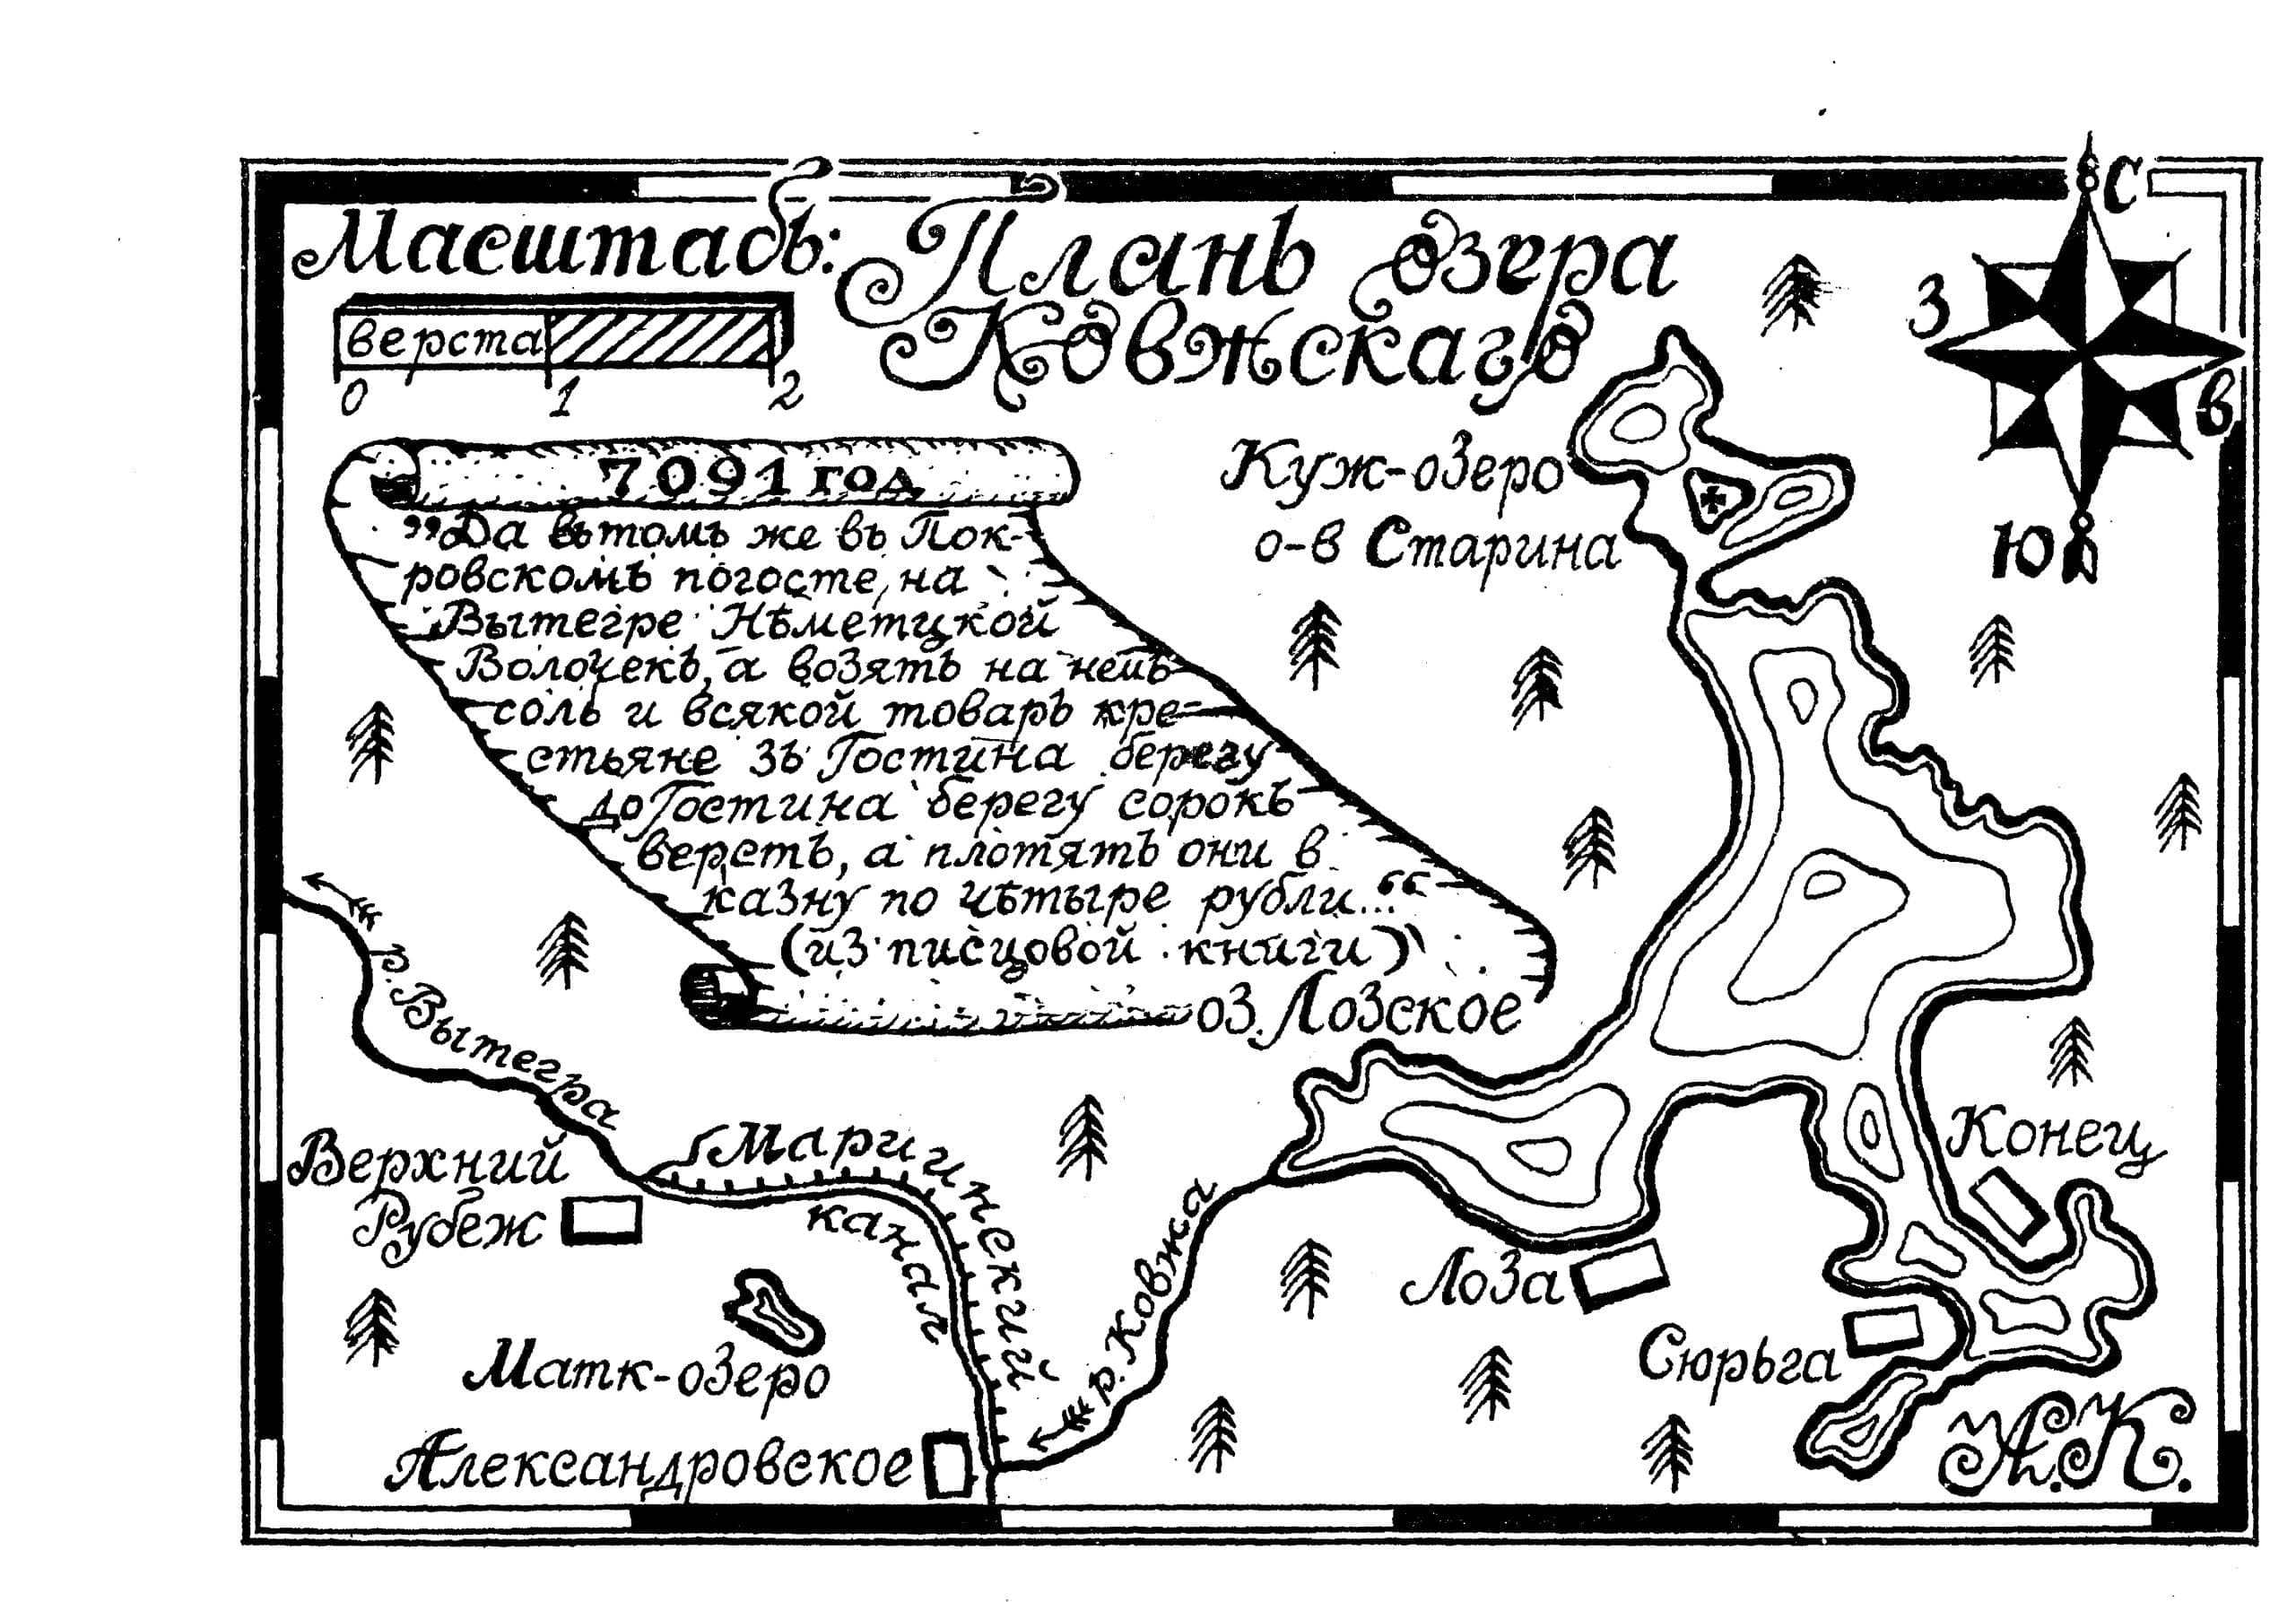 Масштабъ:
верста
0 1 2
Планъ озера
Ковжскаго
С
З
В
Ю
7091 год
„Да въ томъ же въ Пок-
ровскомъ погосте, на
Вытегре Нѣметцкой
Волочекъ, а возятъ на немъ
соль и всякой товаръ кре-
стьяне зъ Гостина берегу
до Гостина берегу сорокъ
верстъ, а плотятъ они в
казну по чѣтыре рубли..."
(из писцовой книги)
Куж-озеро
о-в Старина
оз. Лозское
р. Вытегра
Верхний
Рубеж
Мариинский
канал
Матк-озеро
Александровское
р. Ковжа
Лоза
Конец
Сюрьга
А.К.